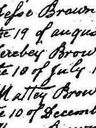 Jesse Brown
te 19 of augus
Terebey Brow
te 10 of July 1
Mattey Brow
te 10 of Decem
Brown